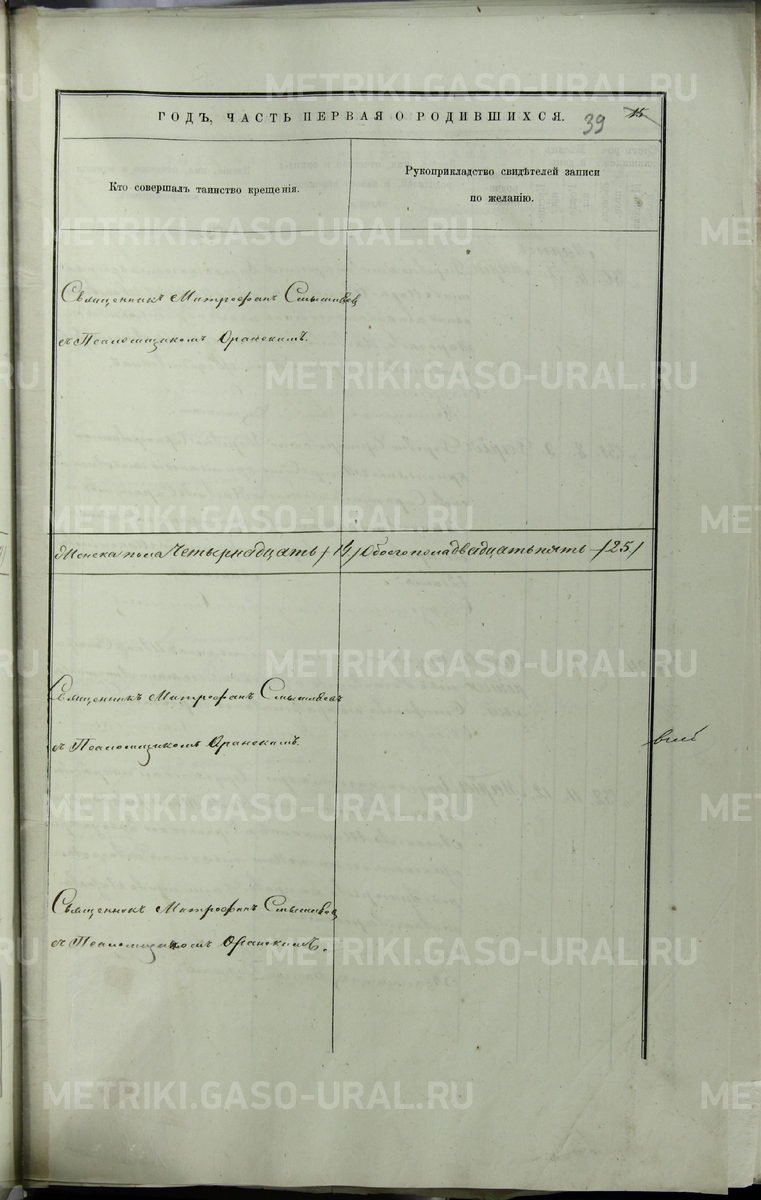 METRIKI.GASO-URAL.RU
ГОДЪ, ЧАСТЬ ПЕРВАЯ О РОДИВШИХСЯ.
39
15
Кто совершалъ таинство крещенія.
Рукоприкладство свидѣтелей записи
по желанію.
Священникъ Митрофанъ
съ Псаломщикомъ Оранскимъ.
Женска пола Четырнадцать /14/ Обоего пола двадцать пять /25/
Священникъ Митрофанъ
съ Псаломщикомъ Оранскимъ.
Священникъ Митрофанъ
съ Псаломщикомъ Оранскимъ.